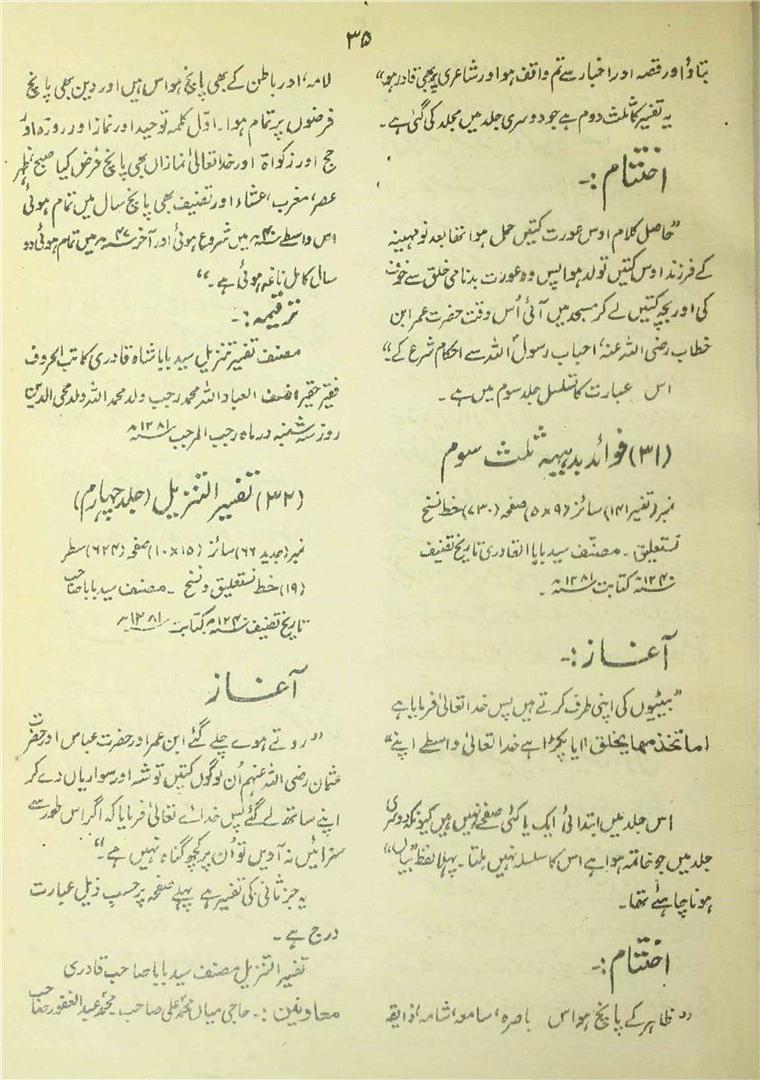 ۳۵
بتاؤ اور قصہ اور اخبار سے تم واقف ہو اور شاعری پر بھی قادر ہو"
یہ تفسیر کا ثلث دوم ہے جو دوسری جلد میں مجلد کی گئی ہے۔
اختتام :۔
"حاصل کلام اوس عورت کتیں حمل ہوا تھا بعد نو مہینہ
کے فرزند اوس کتیں تولد ہوا پس وہ عورت بدنامی خلق سے خوف
کی اور بچہ کتیں لے کر مسجد میں آئی اُس وقت حضرت عمر ابن
خطاب رضی اللہ عنہ، احباب رسول اللہ سے احکام شرع کے"
اس عبارت کا تسلسل جلد سوم میں ہے۔
(۳۱) فوائد بدیہیہ ثلث سوم
نمبر (تفسیر ۱۴۱) سائز (۹×۵) صفحہ (۷۳۰) خط نسخ
نستعلیق۔ مصنف سید بابا القادری تاریخ تصنیف
۱۲۴۰ھ کتابت ۱۲۸۱ھ۔
آغاز :۔
"بیٹیوں کی اپنی طرف کرتے ہیں پس خدا تعالیٰ فرمایا ہے
اما تخذ مما یخلق آیا پکڑا ہے خدا تعالیٰ واسطے اپنے"
اس جلد میں ابتدائی ایک یا کئی صفحے نہیں ہیں کیونکہ دوسری
جلد میں جو خاتمہ ہوا ہے اس کا سلسلہ نہیں ملتا۔ پہلا لفظ "بیان"
ہونا چاہئے تھا۔
اختتام :۔
"ظاہر کے پانچ ہواس باصرہ، سامعہ، شامہ، ذایقہ
لامہ، اور باطن کے بھی پانچ ہواس ہیں اور دین بھی پانچ
فرضوں پر تمام ہوا۔ اوّل کلمہ توحید اور نماز اور روزہ اور
حج اور زکواۃ اور خدا تعالیٰ نمازاں بھی پانچ فرض کیا صبح، ظہر
عصر، مغرب، عشاء اور تصنیف بھی پانچ سال میں تمام ہوئی
اس واسطے ۴۰ھ میں شروع ہوئی اور آخر ۴۷ھ میں تمام ہوئی دو
سال کامل ناغہ ہوئی ہے۔"
ترقیمہ :۔
مصنف تفسیر تنزیل سید بابا شاہ قادری کاتب الحروف
فقیر حقیر اضعف العباد اللہ محمد رجب ولد محمد اللہ ولد محی الدین
روز سہ شنبہ در ماہ رجب المرجب ۱۲۸۱ھ
(۳۲) تفسیر التنزیل (جلد چہارم)
نمبر (جدید ۶۶) سائز (۱۵×۱۰) صفحہ (۶۲۴) سطر
(۱۹) خط نستعلیق و نسخ۔ مصنف سید بابا صاحب
تاریخ تصنیف ۱۲۴۰ھ کتابت ۱۲۸۱ھ
آغاز
"روتے ہوے چلے گئے ابن عمر اور حضرت عباس اور حضرت
عثمان رضی اللہ عنہم اُن لوگوں کتیں توشہ اور سواریاں دے کر
اپنے ساتھ لے گئے پس خدائے تعالیٰ فرمایا کہ اگر اس طور سے
سزائیں نہ آدیں تو اُن پر کچھ گناہ نہیں ہے۔"
یہ جز ثانی کی تفسیر ہے پہلے صفحہ پر حسب ذیل عبارت
درج ہے۔
تفسیر التنزیل مصنف سید بابا صاحب قادری
معاونین :۔ حاجی میاں محمد علی صاحب۔ محمد عبد الغفور صاحب